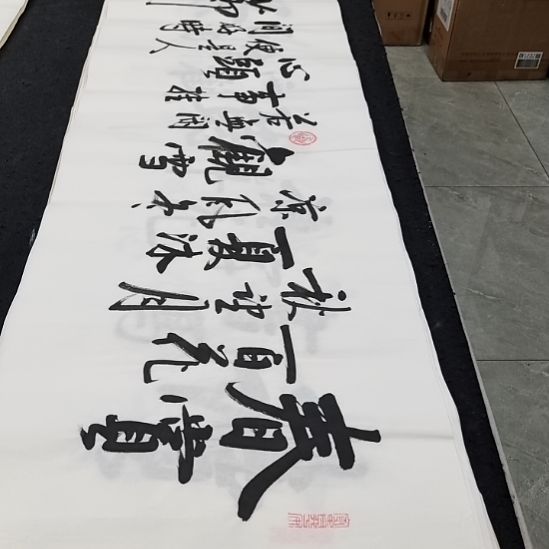 春賞
百花
秋望月
夏沐
涼風冬
觀雪
若無閒
事掛
心頭
便是人
間好時
節